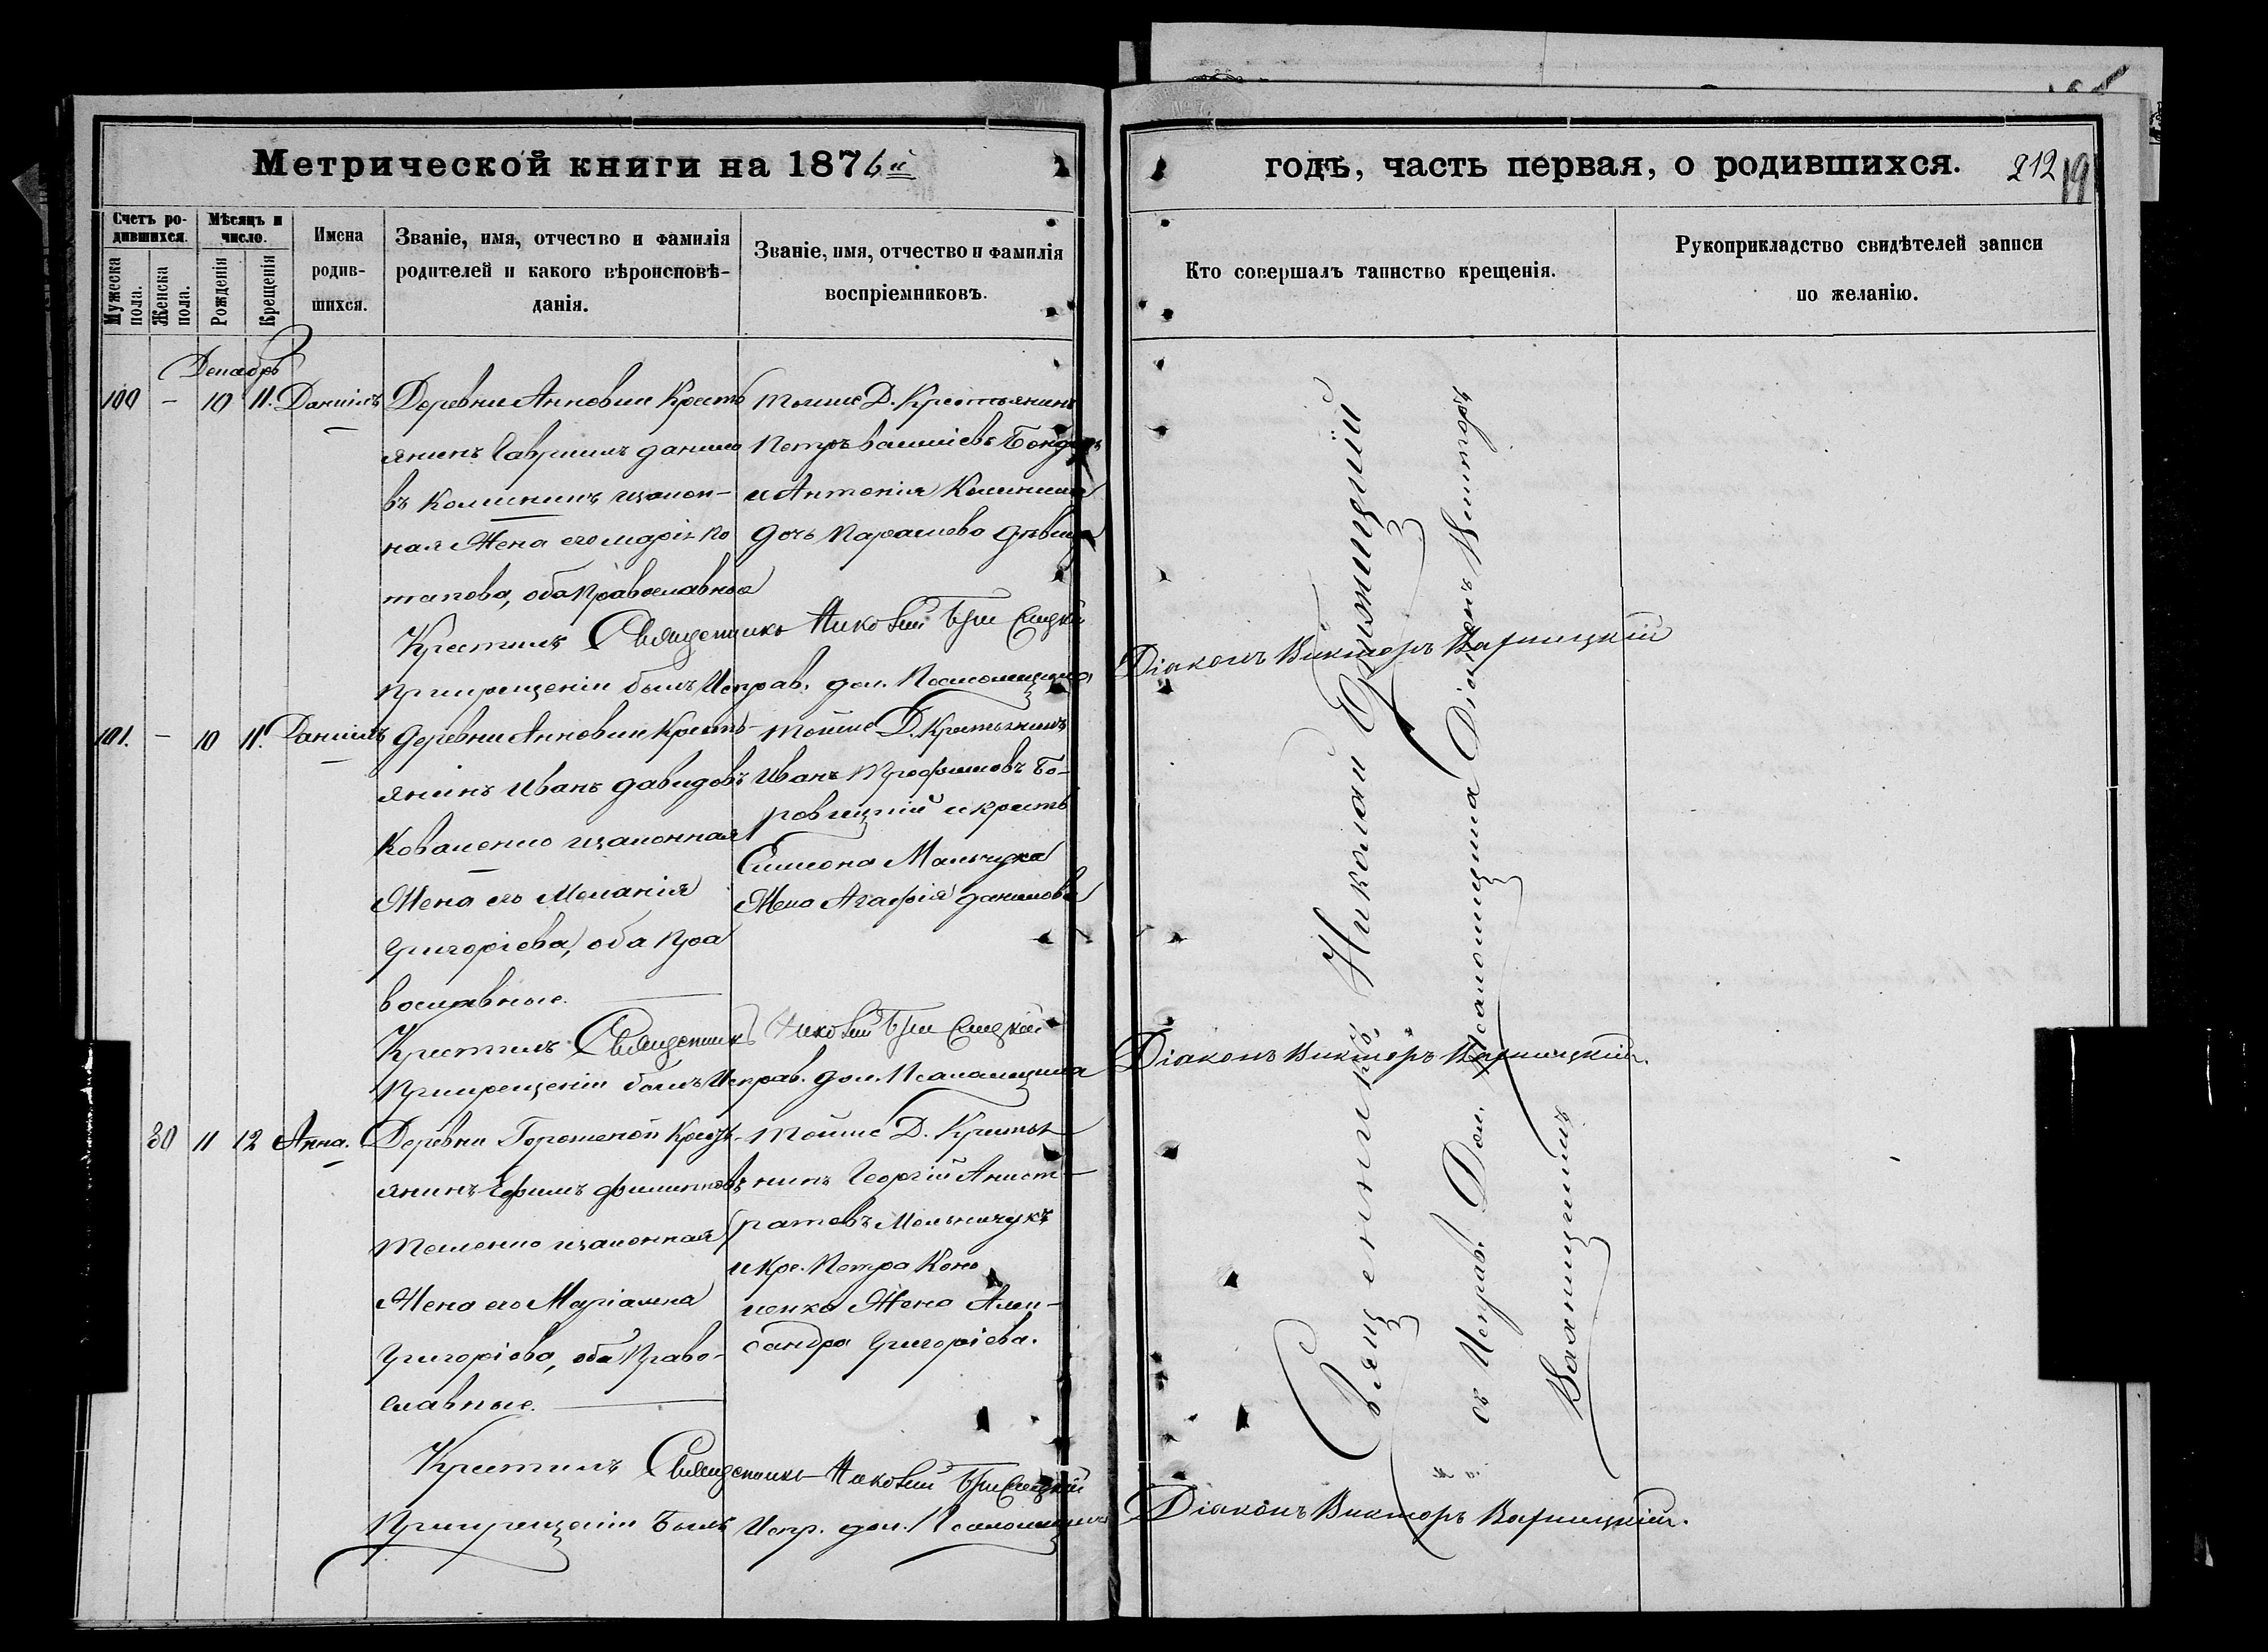 Метрической книги на 1876й
годъ, часть первая, о родившихся. 212 19
Счетъ ро-
дившихся.
Мѣсяцъ и
число.
Мужеска
пола.
Женска
пола.
Рожденія
Крещенія
Имена
родив-
шихся.
Званіе, имя, отчество и фамилія
родителей и какого вѣроисповѣ-
данія.
Званіе, имя, отчество и фамилія
воспріемниковъ.
Кто совершалъ таинство крещенія.
Рукоприкладство свидѣтелей записи
по желанію.
Декабрь
100 – 10 11. Даніилъ
Деревни Анновки Кресть
янинъ Гавриилъ Данило
въ Калининъ изакон-
ная Жена его Марія По
тапова, оба Православные
тойже Д. Крестьянинъ
Петръ
и Антонія Калинина
дочь дѣвица
Крестилъ Священникъ Николай
При крещеніи былъ Исправ. дол. Псаломщика
Діаконъ Викторъ
101. – 10 11. Даніилъ
Деревни Анновки Кресть-
янинъ Иванъ Давидовъ
Коваленко изаконная
Жена его Меланія
Григоріева, оба Пра
вославные.
тойже Д. Крестьянинъ
Иванъ Бо-
ровицкій и крест
Симеона
Жена Агафія Данилова
Крестилъ Священникъ Николай
При крещеніи былъ Исправ. дол. Псаломщика
Діаконъ Викторъ
30 11 12 Анна.
Деревни Гороженой Крест-
янинъ Ефимъ Филипповъ
изаконная
Жена его Маріанна
Григоріева, оба Право-
славные.
тойже Д. Крестья
нинъ Георгій Анист-
ратовъ Мельничукъ
и кре. Петра Коно
ненка Жена Алек-
сандра Григоріева.
Крестилъ Священникъ Николай
При крещеніи былъ Испр. дол. Псаломщика
Діаконъ Викторъ
Священникъ Николай
съ Исправ. Дол. Псаломщика Діаконъ Викторъ